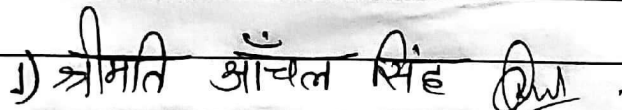 1) श्रीमति आँचल सिंह